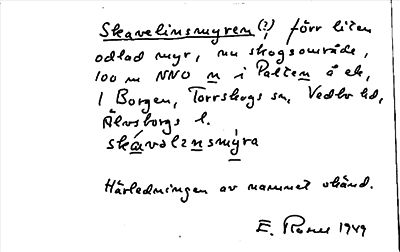 Skavelinsmyren (?), förr liten
odlad myr, nu skogsområde,
100 m NNO n i Palten å ek,
1 Borgen, Torrskogs sn, Vedbo hd,
Älvsborgs l.
skávəlinsmýra
Härledningen av namnet okänd.
E. 1949